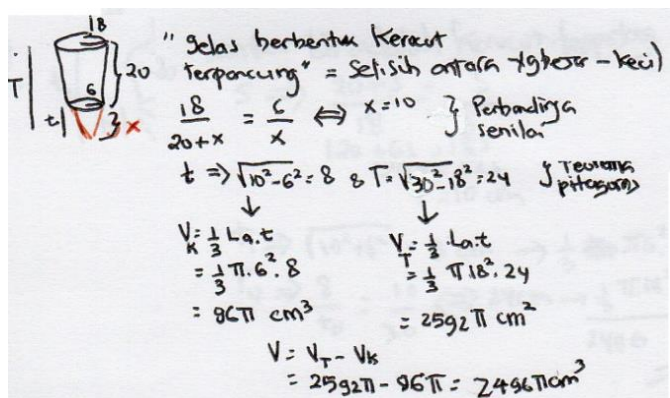 18
"gelas berbentuk Kerucut
T 6 } 20 Terpancung" = Selisih antara yg besar - kecil
t } x 18/(20+x) = 6/x ⇔ x = 10 } Perbandingan senilai
t ⇒ √(10²-6²) = 8 & T = √(30²-18²) = 24 } Teorema pitagoras
↓ ↓
V_K = 1/3 La.t V_T = 1/3 La.t
= 1/3 π.6².8 = 1/3 π 18².24
= 96π cm³ = 2592π cm²
V = V_T - V_K
= 2592π - 96π = 2496π cm³